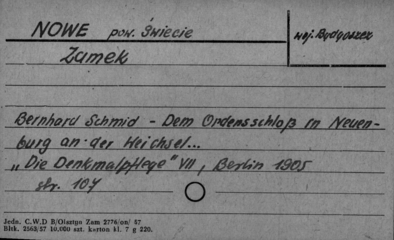 NOWE pow. Świecie
woj. Bydgoszcz
Zamek
Bernhard Schmid - Dem Ordensschloß in Neuen-
burg an der Weichsel...
„Die Denkmalpflege" VII, Berlin 1905
str. 107
Jedn. C.W.D B/Olsztyn Zam 2776/on/ 57
Blsk. 2563/57 10,000 szt. karton kl. 7 g 220.